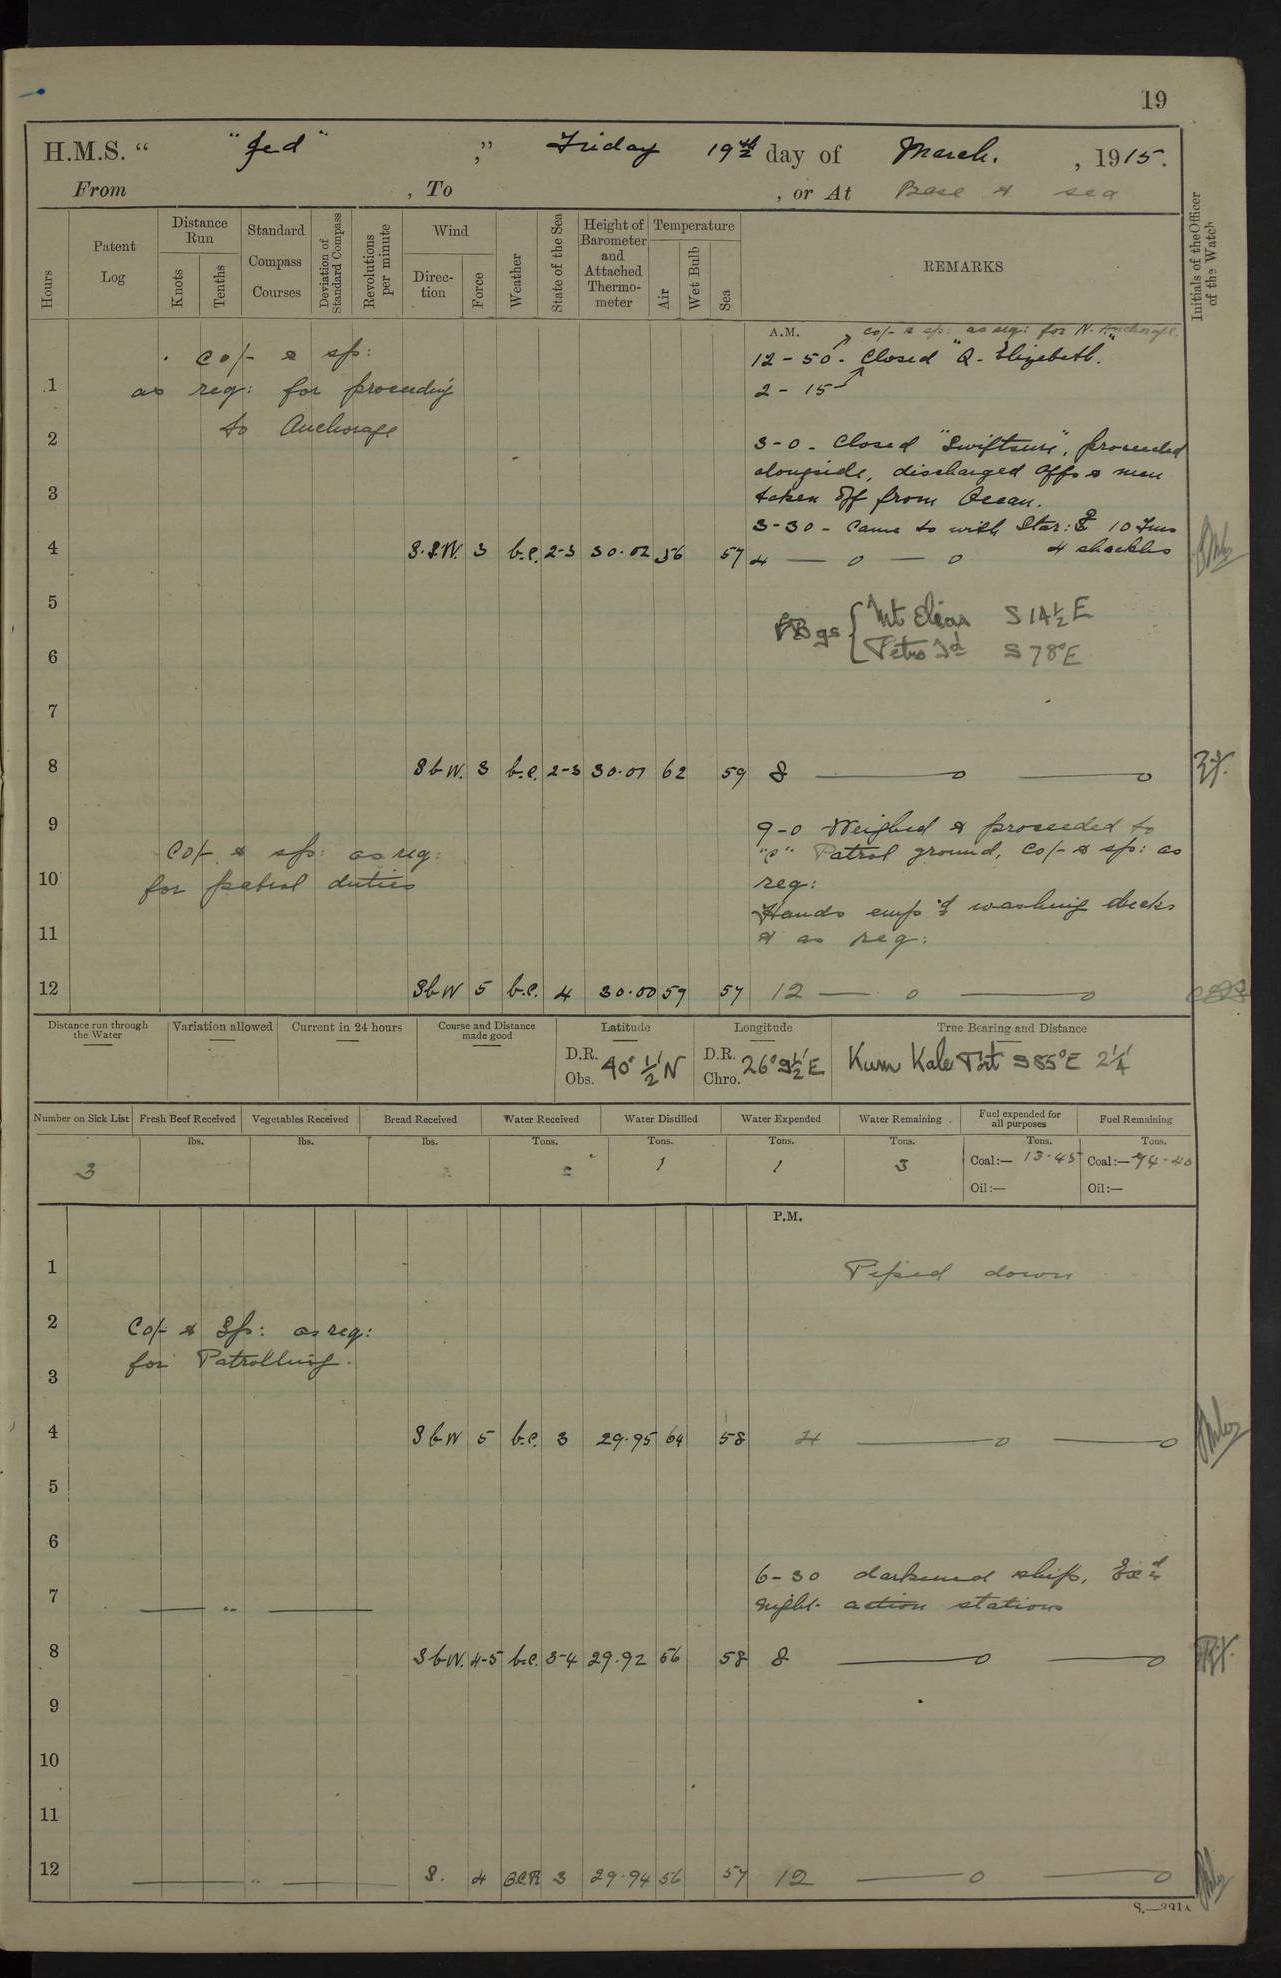 19
H.M.S. “ "Jed" ,” Friday 19th day of March. , 1915.
From , To , or At Base & sea
Hours
Patent Log
Distance Run
Knots
Tenths
Standard Compass Courses
Deviation of Standard Compass
Revolutions per minute
Wind
Direc-tion
Force
Weather
State of the Sea
Height of Barometer and Attached Thermo-meter
Temperature
Air
Wet Bulb
Sea
REMARKS
Initials of the Officer of the Watch
A.M. co/- & sp: as req: for N. Anchorage.
Co/- & sp: 12-50- Closed "Q. Elizabeth."
1 as req: for proceeding 2-15-
to Anchorage
2 3-0- Closed "Swiftsure", proceeded
alongside, discharged Offs & men
3 taken off from Ocean.
3-30- Came to with Star: 10 Fms
4 shackles
4 S.S.W. 3 b.c. 2-3 30.02 56 57 4
5
Bgs { Mt Elias S 14½ E
6 Petro Id S 78° E
7
8 SbW. 3 b.c. 2-3 30.01 62 59 8
9 9-0 Weighed & proceeded to
Co/- & sp: as req: "C" Patrol ground, Co/- & sp: as
10 for patrol duties req:
Hands emp'd washing decks
11 & as req:
12 SbW 5 b.c. 4 30.00 59 57 12
Distance run through the Water
Variation allowed
Current in 24 hours
Course and Distance made good
Latitude
D.R. Obs. 40° ½' N
Longitude
D.R. Chro. 26° 9½' E
True Bearing and Distance
Kum Kale Pt S 85° E 2¼'
Number on Sick List Fresh Beef Received Vegetables Received Bread Received Water Received Water Distilled Water Expended Water Remaining Fuel expended for all purposes Fuel Remaining
lbs. lbs. lbs. Tons. Tons. Tons. Tons. Tons. Tons.
3 1 1 3 Coal:— 13.45 Coal:— 94.40
Oil:— Oil:—
P.M.
1 Piped down
2 Co/- & Sp: as req:
for Patrolling.
3
4 SbW 5 b.c. 3 29.95 64 58 4
5
6
6-30 darkened ship, Ex'd
7 — " — night action stations
8 SbW. 4-5 b.c. 3-4 29.92 56 58 8
9
10
11
12 — " — S. 4 B.C.R 3 29.94 56 57 12
S.—221A